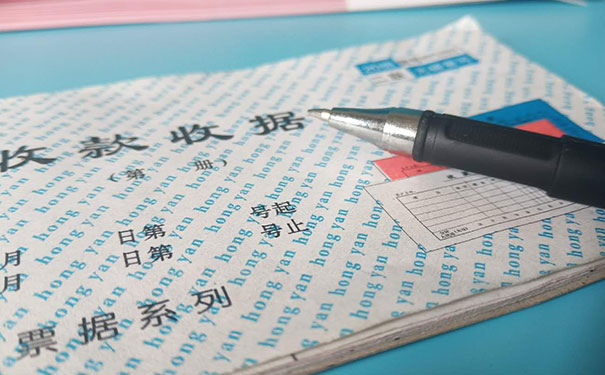 收款收据
(第 册)
月 日第 号起
月 日第 号止
票据系列
hong yan hong yan hong yan